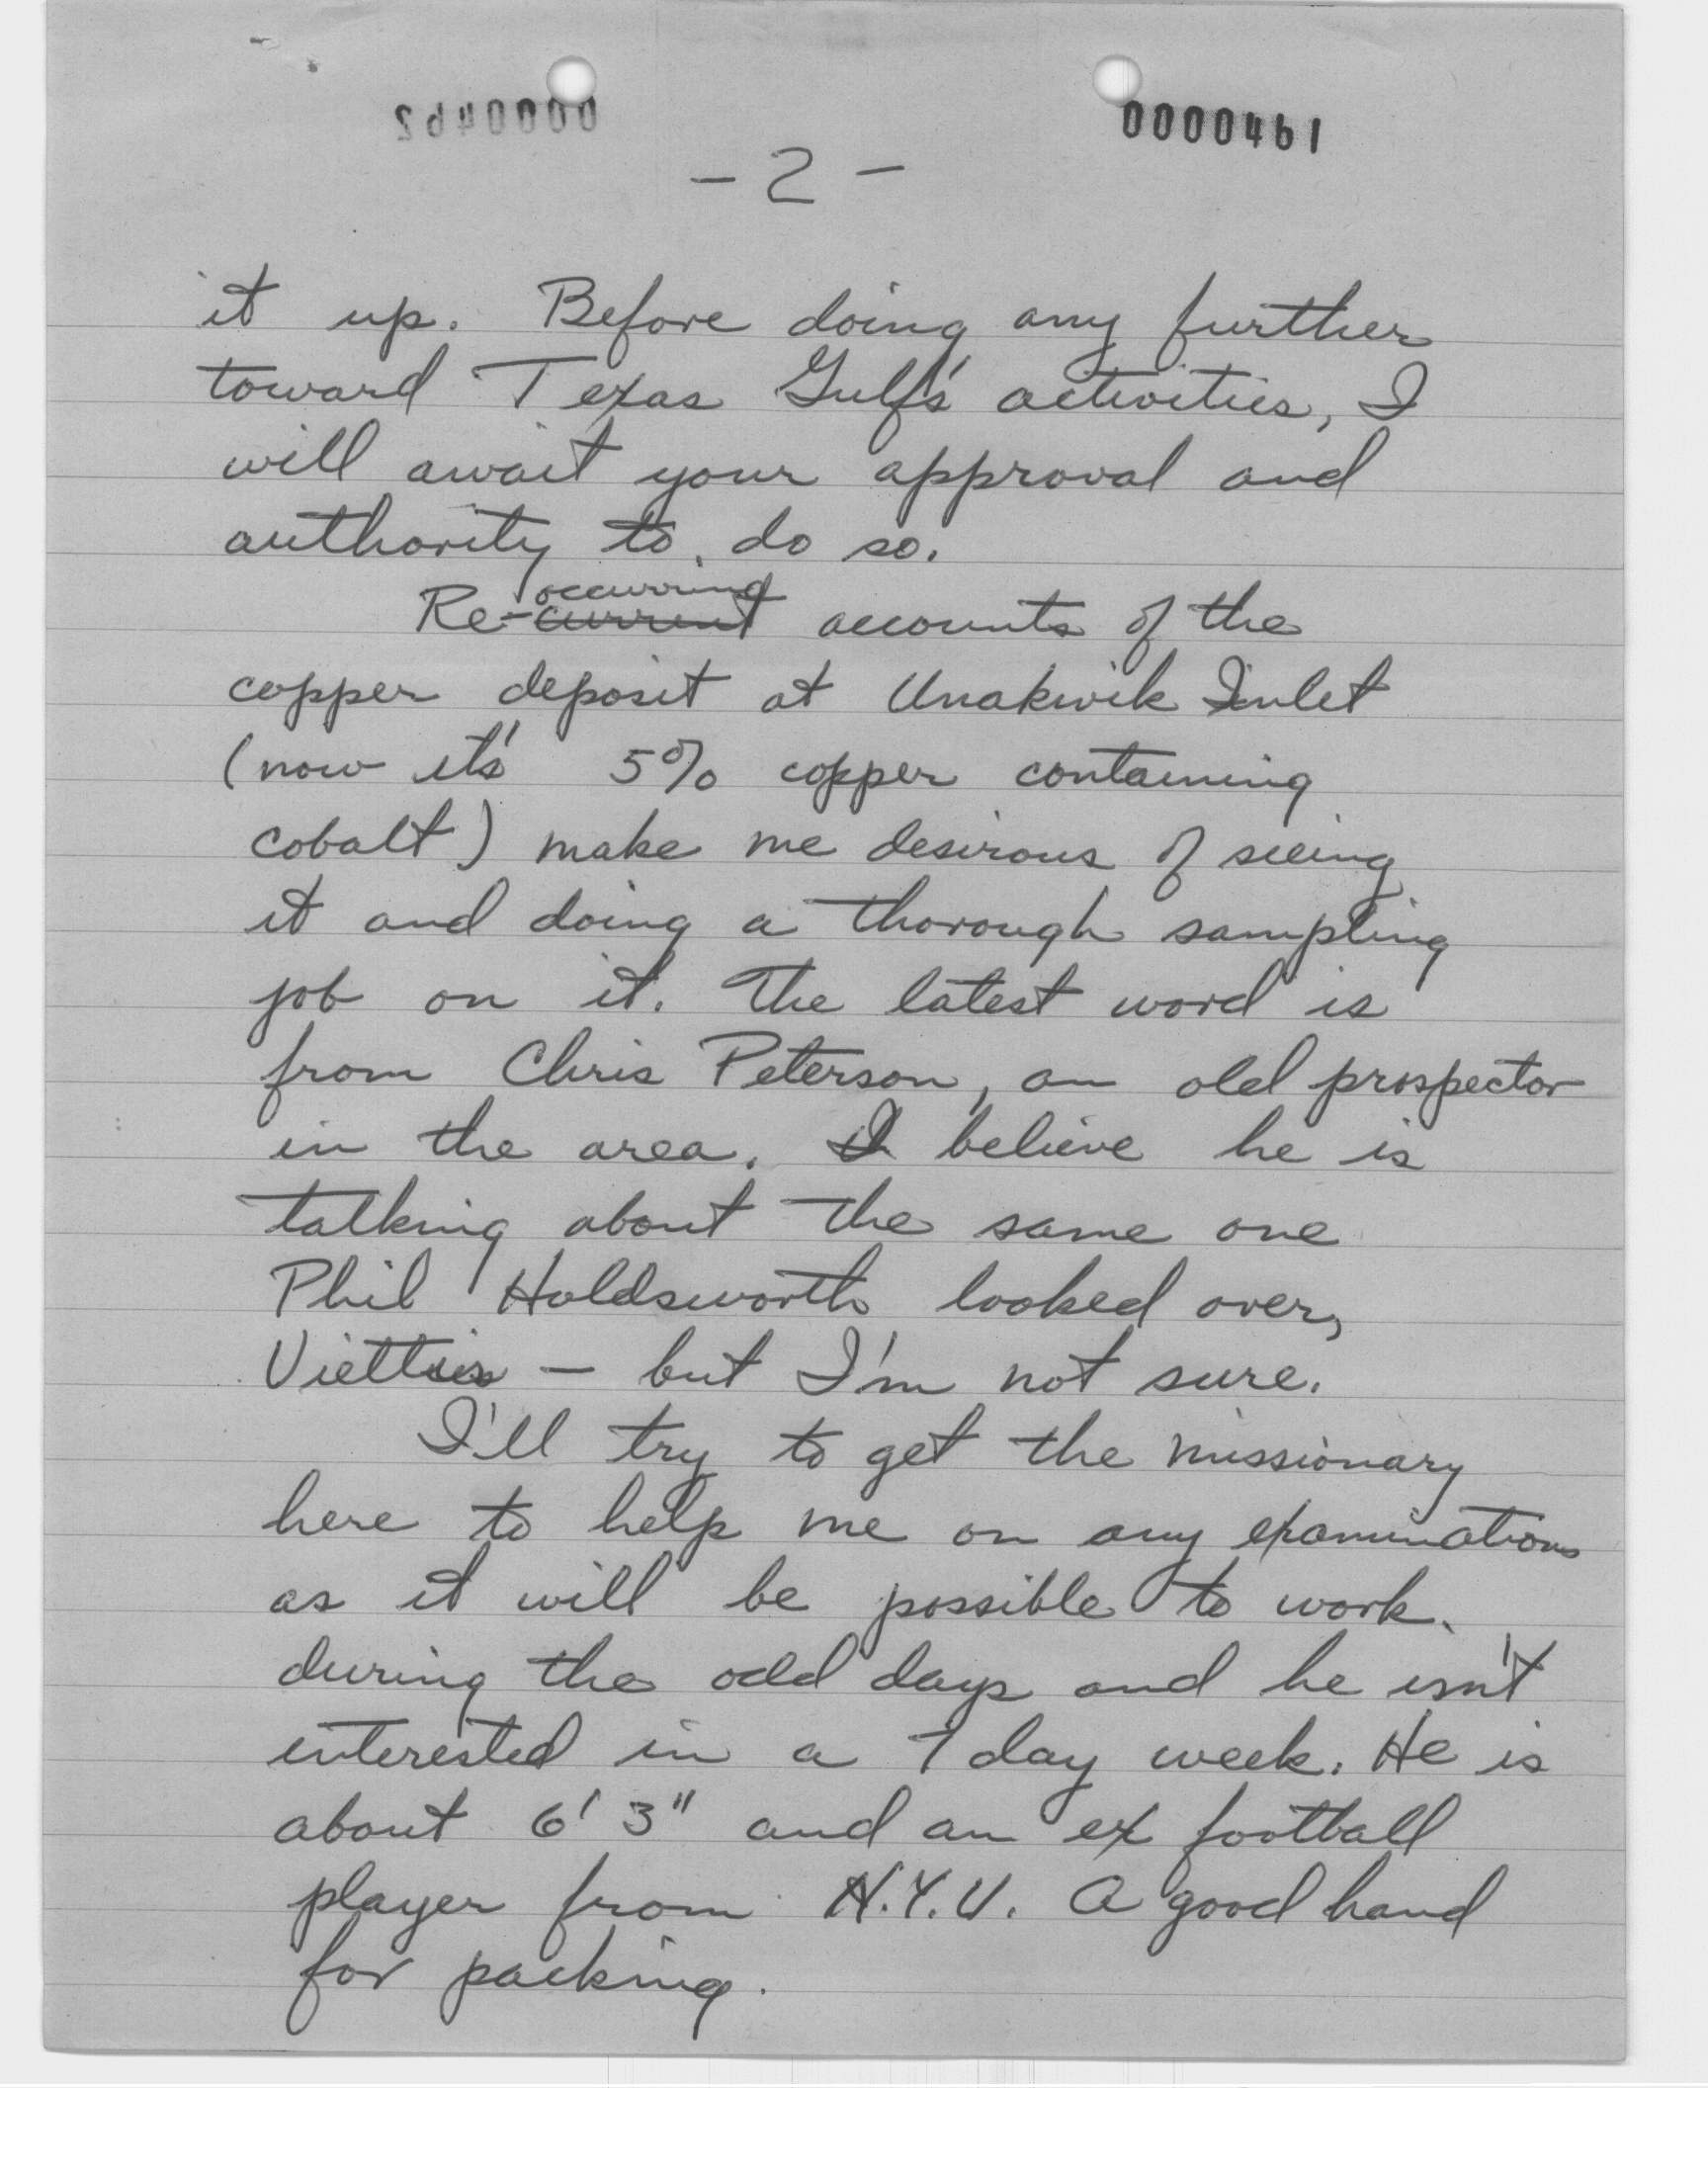 0000462
0000461
- 2 -
it up. Before doing any further
toward Texas Gulf's activities, I
will await your approval and
authority to do so.
occurring
Re-current accounts of the
copper deposit at Unakwik Inlet
(now it's 5% copper containing
cobalt) make me desirous of seeing
it and doing a thorough sampling
job on it. The latest word is
from Chris Peterson, an old prospector
in the area. I believe he is
talking about the same one
Phil Holdsworth looked over,
— but I'm not sure.
I'll try to get the missionary
here to help me on any examinations
as it will be possible to work
during the odd days and he isn't
interested in a 7 day week. He is
about 6' 3" and an ex football
player from N.Y.U. A good hand
for packing.